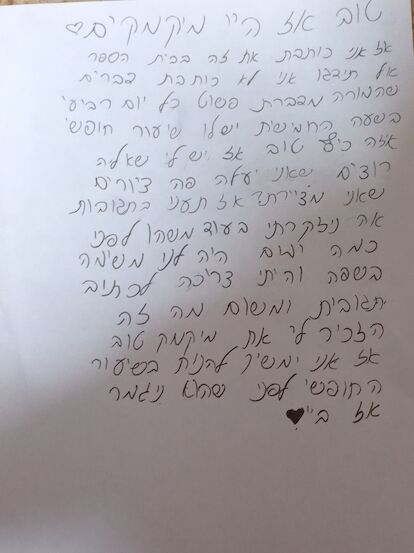 טוב אז היי מיקמקים♡
אז אני כותבת את זה בבית הספר
אל תידגו אני לא כותבת דברים
שהמורה מדברת פשוט כל יום רביעי
בשעה החמישית יש לנו שיעור חופשי
אזה כיף טוב אז יש לי שאלה
רוצים שאני יעלה פה ציורים
שאני מציירת? אז תעני בתגובות
אה ניזקרתי בעוד משהו לפני
כמה ימים היה לי משימה
בשפה והיתי צריכה לכתיב
תגובית ומשום מה זה
הזכיר לי את מיקמק טוב
אז אני ימשיך להנות בשיעור
החופשי לפני שהוא ניגמר
אז ביי♥